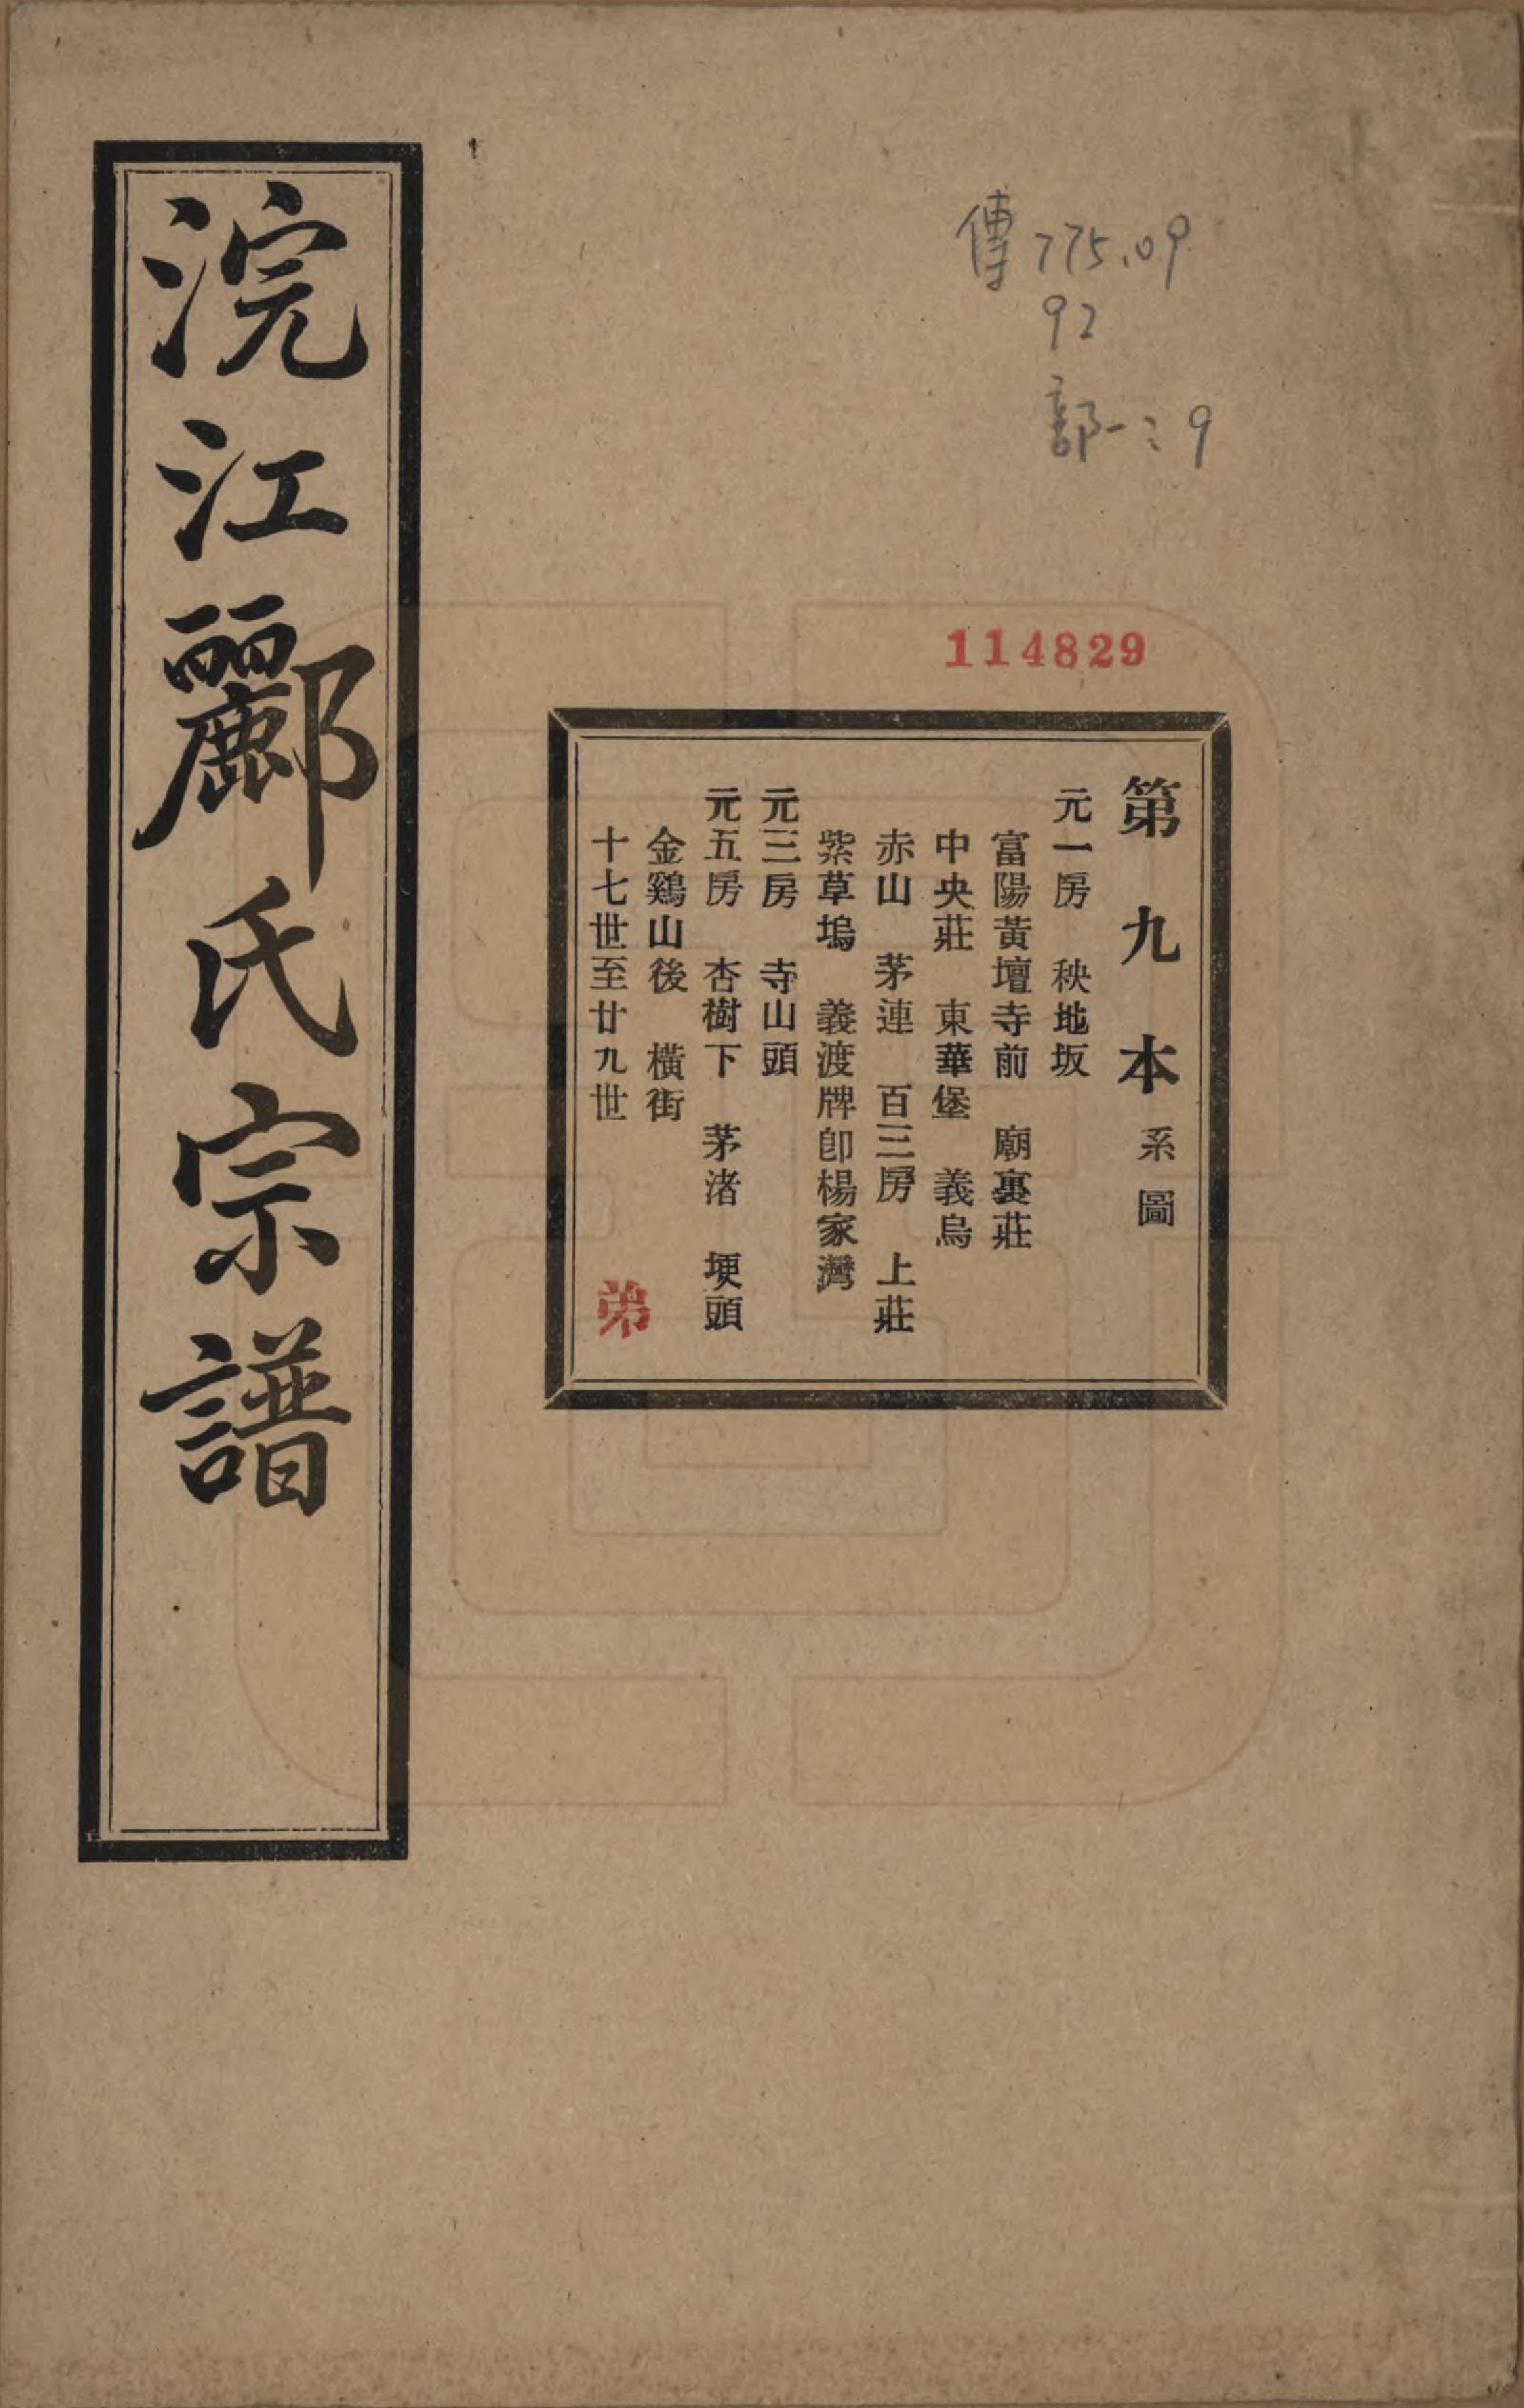 浣江酈氏宗譜
傳 775.09
92
部一:9
114829
第九本 系圖
元一房 秧地坂
富陽黃壇寺前 廟裏莊
中央莊 東華堡 義烏
赤山 茅連 百三房 上莊
紫草塢 義渡牌卽楊家灣
元三房 寺山頭
元五房 杏樹下 茅渚 埂頭
金鷄山後 橫街
十七世至廿九世
弟